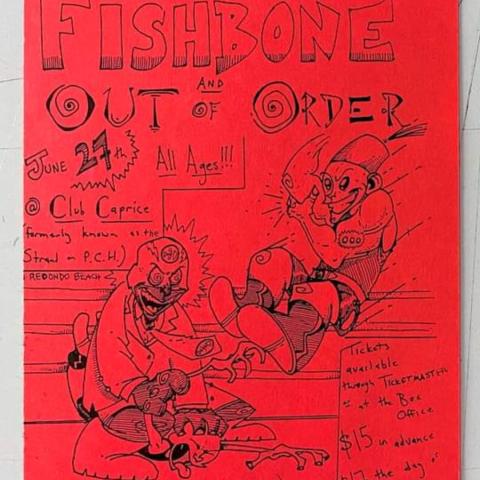 FISHBONE
AND
OUT OF ORDER
JUNE 27th All Ages!!!
@ Club Caprice
(formerly known as the
Strand on P.C.H.)
REDONDO BEACH
Tickets
available
through TICKETMASTER
at the Box
Office
$15 in advance
$17 the day of